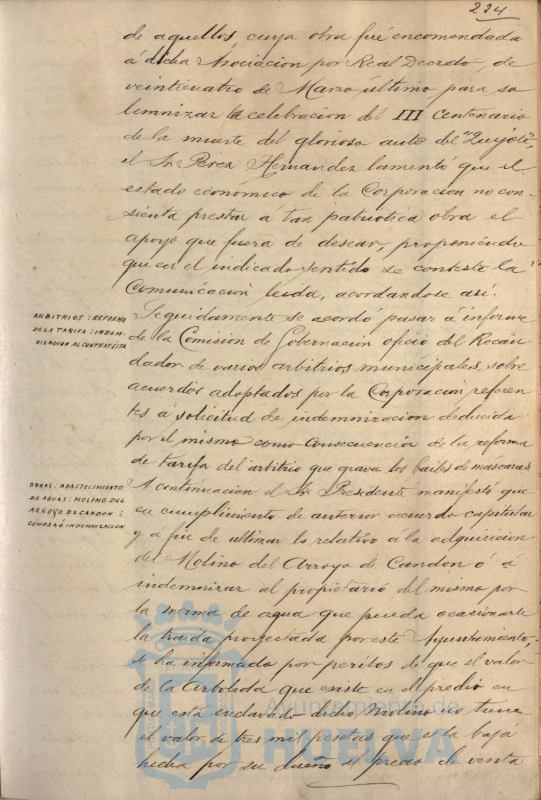 224
de aquellos cuya obra fué encomendada
á dicha Asociacion por Real Decreto, de
veinticuatro de Marzo último para so
lemnizar la celebracion del III Centenario
de la muerte del glorioso autor del "Quijote",
el Sr. Perez Hernandez lamentó que el
estado económico de la Corporacion no con-
sienta prestar a tan patriotica obra el
apoyo que fuera de desear, proponiendo
que en el indicado sentido se conteste la
comunicacion leida, acordandose así.
ARBITRIOS: REFORMA
DE LA TARIFA: INDEM-
NIZACION AL CONTRATISTA
Seguidamente se acordó pasar á informe
de la Comision de Gobernacion oficio del Recau
dador de varios arbitrios municipales, sobre
acuerdos adoptados por la Corporacion referen
tes á solicitud de indemnizacion deducida
por el mismo como consecuencia de la reforma
de tarifa del arbitrio que grava los bailes de máscaras
OBRAS: ABASTECIMIENTO
DE AGUAS: MOLINO DEL
ARROYO DE CANDON:
COMPRA Ó INDEMNIZACION
A continuacion el Sr. Presidente manifestó que
en cumplimiento de anterior acuerdo capitular
y a fin de ultimar lo relativo a la adquicicion
del Molino del Arroyo de Candon ó á
indemnizar al propietario del mismo por
la merma de agua que pueda ocasionarle
la traida proyectada por este Ayuntamiento,
se ha informado por peritos de que el valor
de la arboleda que existe en el predio en
que está enclavado dicho Molino no tiene
el valor de tres mil pesetas que es la baja
hecha por su dueño al precio de venta
Ayuntamiento de
HUELVA